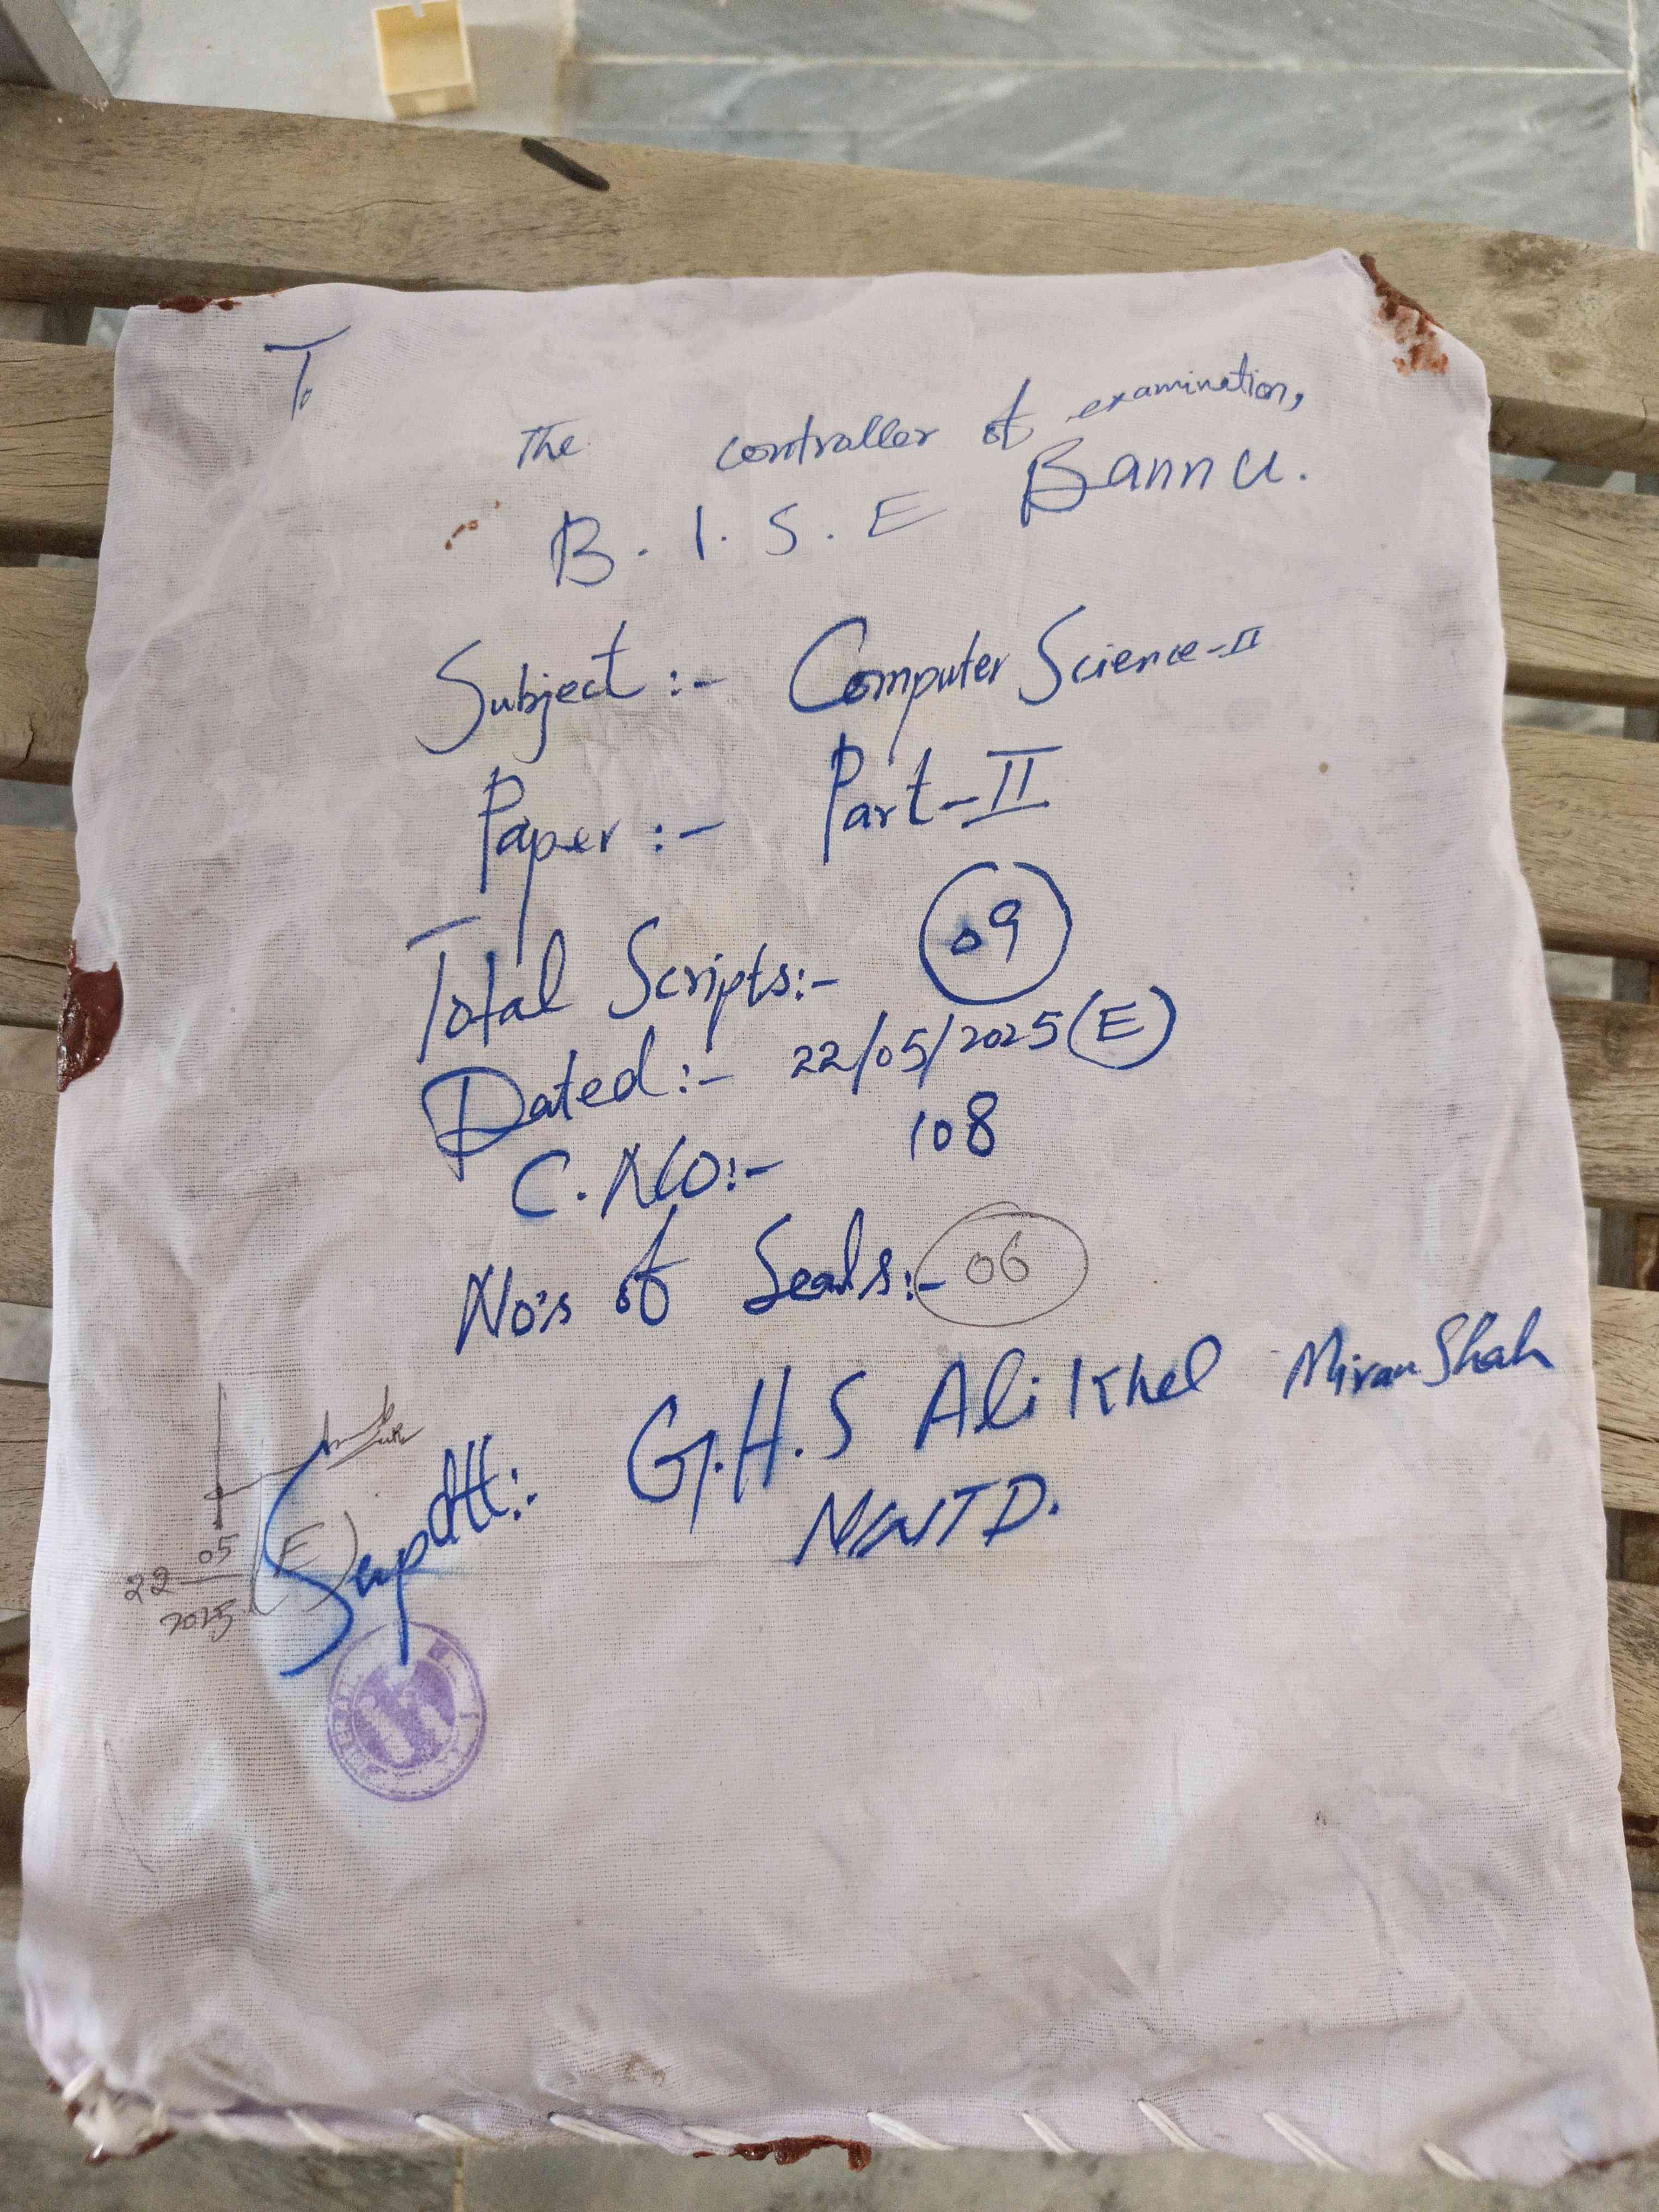 To
The controller of examination,
B.I.S.E Bannu.
Subject:- Computer Science-II
Paper:- Part-II
Total Scripts:- 09
Dated:- 22/05/2025 (E)
C.No:- 108
No's of Seals:- 06
Supdtt:- G.H.S Ali Khel Miran Shah
NWTD.
22 05 2025 (E)